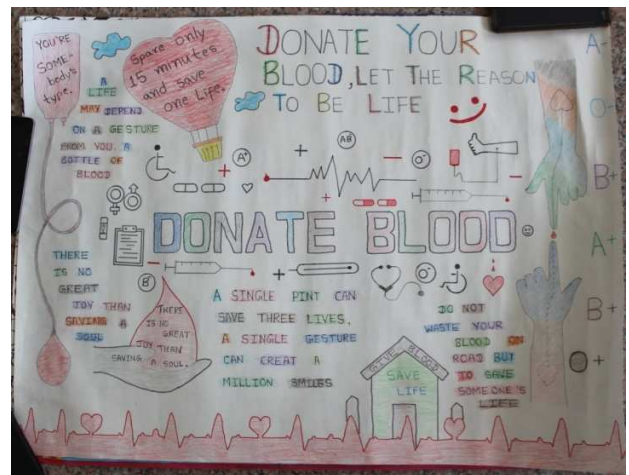 YOU'RE
SOME-
body's
type.
Spare only
15 minutes
and save
one Life.
DONATE YOUR
BLOOD, LET THE REASON
TO BE LIFE
A
LIFE
MAY DEPEND
ON A GESTURE
FROM YOU, A
BOTTLE OF
BLOOD
A+
AB
O-
A-
O-
B+
A+
B+
O+
DONATE BLOOD
THERE
IS NO
GREAT
JOY THAN
SAVING A
SOUL
B-
THERE
IS NO
GREAT
JOY THAN
SAVING A SOUL.
A SINGLE PINT CAN
SAVE THREE LIVES,
A SINGLE GESTURE
CAN CREAT A
MILLION SMILES
GIVE BLOOD
SAVE
LIFE
DO NOT
WASTE YOUR
BLOOD ON
ROAD BUT
TO SAVE
SOMEONE'S
LIFE